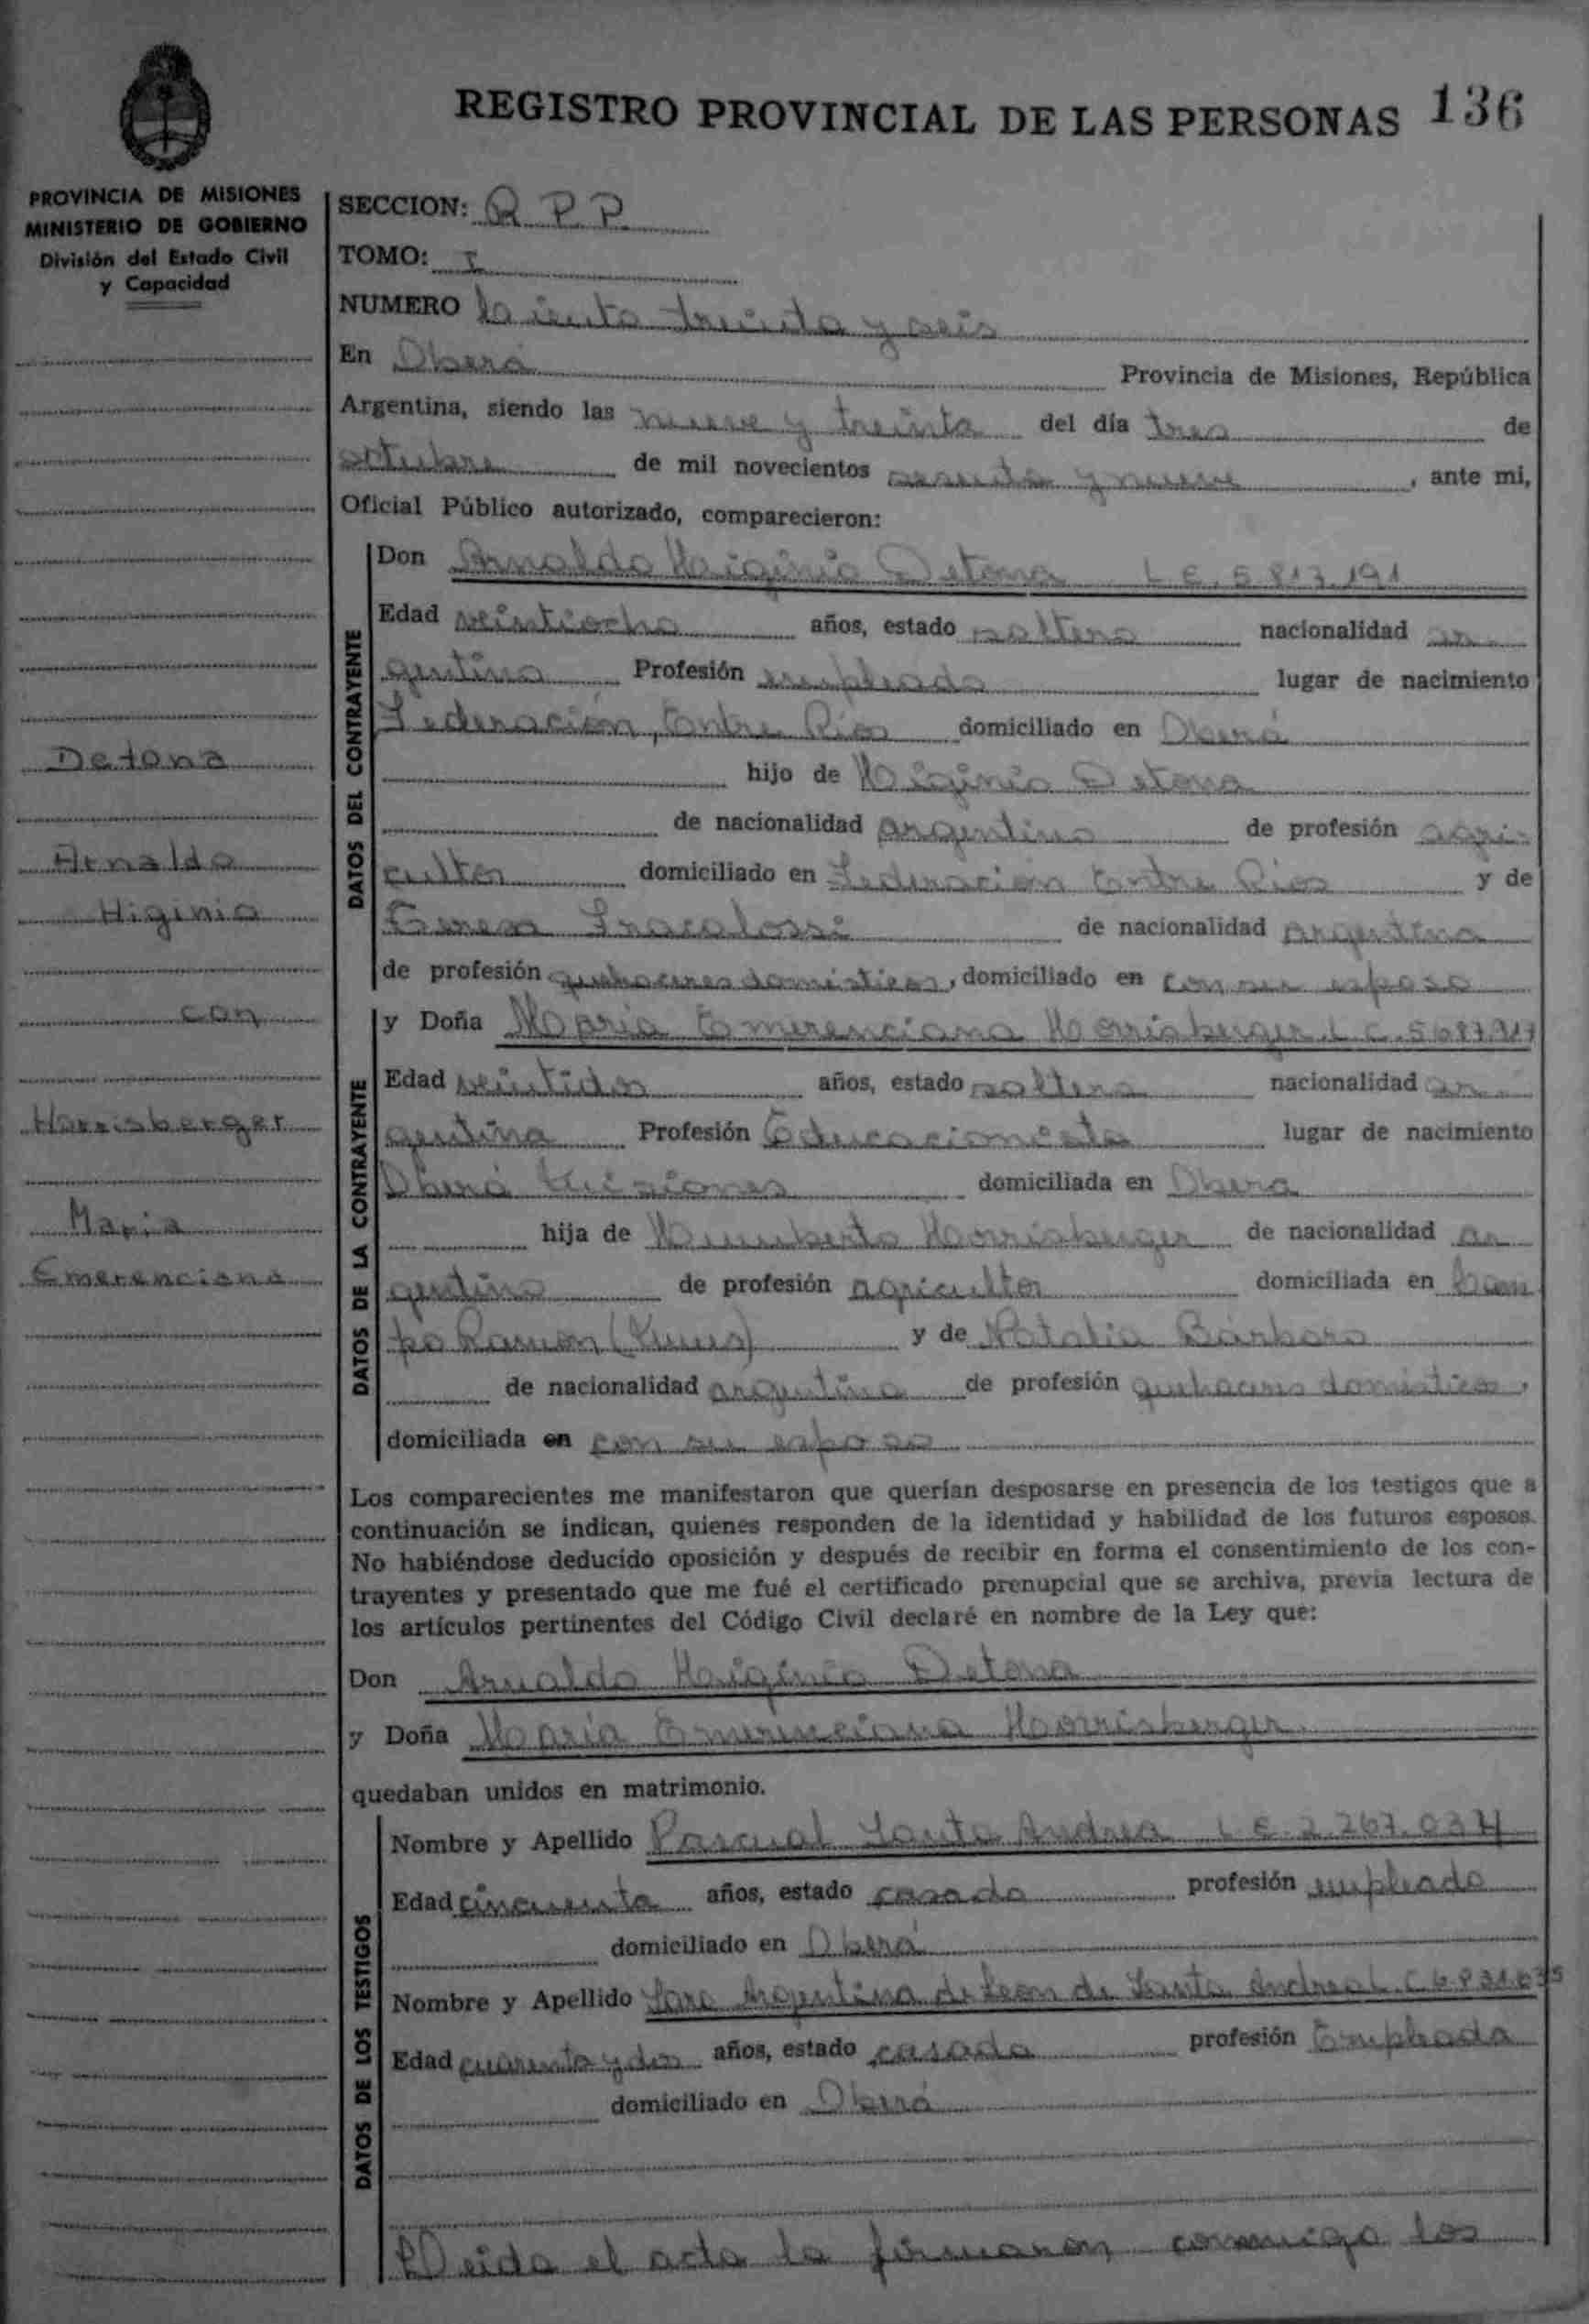 REGISTRO PROVINCIAL DE LAS PERSONAS 136
PROVINCIA DE MISIONES
MINISTERIO DE GOBIERNO
División del Estado Civil
y Capacidad
Detona
Arnaldo
Higinio
con
Horrisberger
Maria
Emerenciana
SECCION: R P P
TOMO: I
NUMERO ciento treinta y seis
En Oberá Provincia de Misiones, República
Argentina, siendo las nueve y treinta del día tres de
octubre de mil novecientos sesenta y nueve, ante mi,
Oficial Público autorizado, comparecieron:
DATOS DEL CONTRAYENTE
Don Arnaldo Higinio Detona L E. 5.817.191
Edad veintiocho años, estado soltero nacionalidad ar
gentina Profesión empleado lugar de nacimiento
Federación, Entre Ríos domiciliado en Oberá
hijo de Higinio Detona
de nacionalidad argentino de profesión agri-
cultor domiciliado en Federación Entre Ríos y de
Teresa Fracalossi de nacionalidad argentina
de profesión quehaceres domésticos, domiciliado en con su esposo
DATOS DE LA CONTRAYENTE
y Doña María Emerenciana Horrisberger L. C.
Edad veintidos años, estado soltera nacionalidad ar
gentina Profesión Educacionista lugar de nacimiento
Oberá Misiones domiciliada en Oberá
hija de Humberto Horrisberger de nacionalidad ar
gentino de profesión agricultor domiciliada en Cam
po Ramón y de Natalia Bárbaro
de nacionalidad argentina de profesión quehaceres domésticos,
domiciliada en con su esposo
Los comparecientes me manifestaron que querían desposarse en presencia de los testigos que a
continuación se indican, quienes responden de la identidad y habilidad de los futuros esposos.
No habiéndose deducido oposición y después de recibir en forma el consentimiento de los con-
trayentes y presentado que me fué el certificado prenupcial que se archiva, previa lectura de
los artículos pertinentes del Código Civil declaré en nombre de la Ley que:
Don Arnaldo Higinio Detona
y Doña María Emerenciana Horrisberger
quedaban unidos en matrimonio.
DATOS DE LOS TESTIGOS
Nombre y Apellido Pascual Santa Andrea L E. 2.267.034
Edad cincuenta años, estado casado profesión empleado
domiciliado en Oberá
Nombre y Apellido Sara Argentina de Leon de Santa Andrea L. C
Edad cuarenta y dos años, estado casada profesión Empleada
domiciliado en Oberá
Leida el acta la firmaron conmigo los